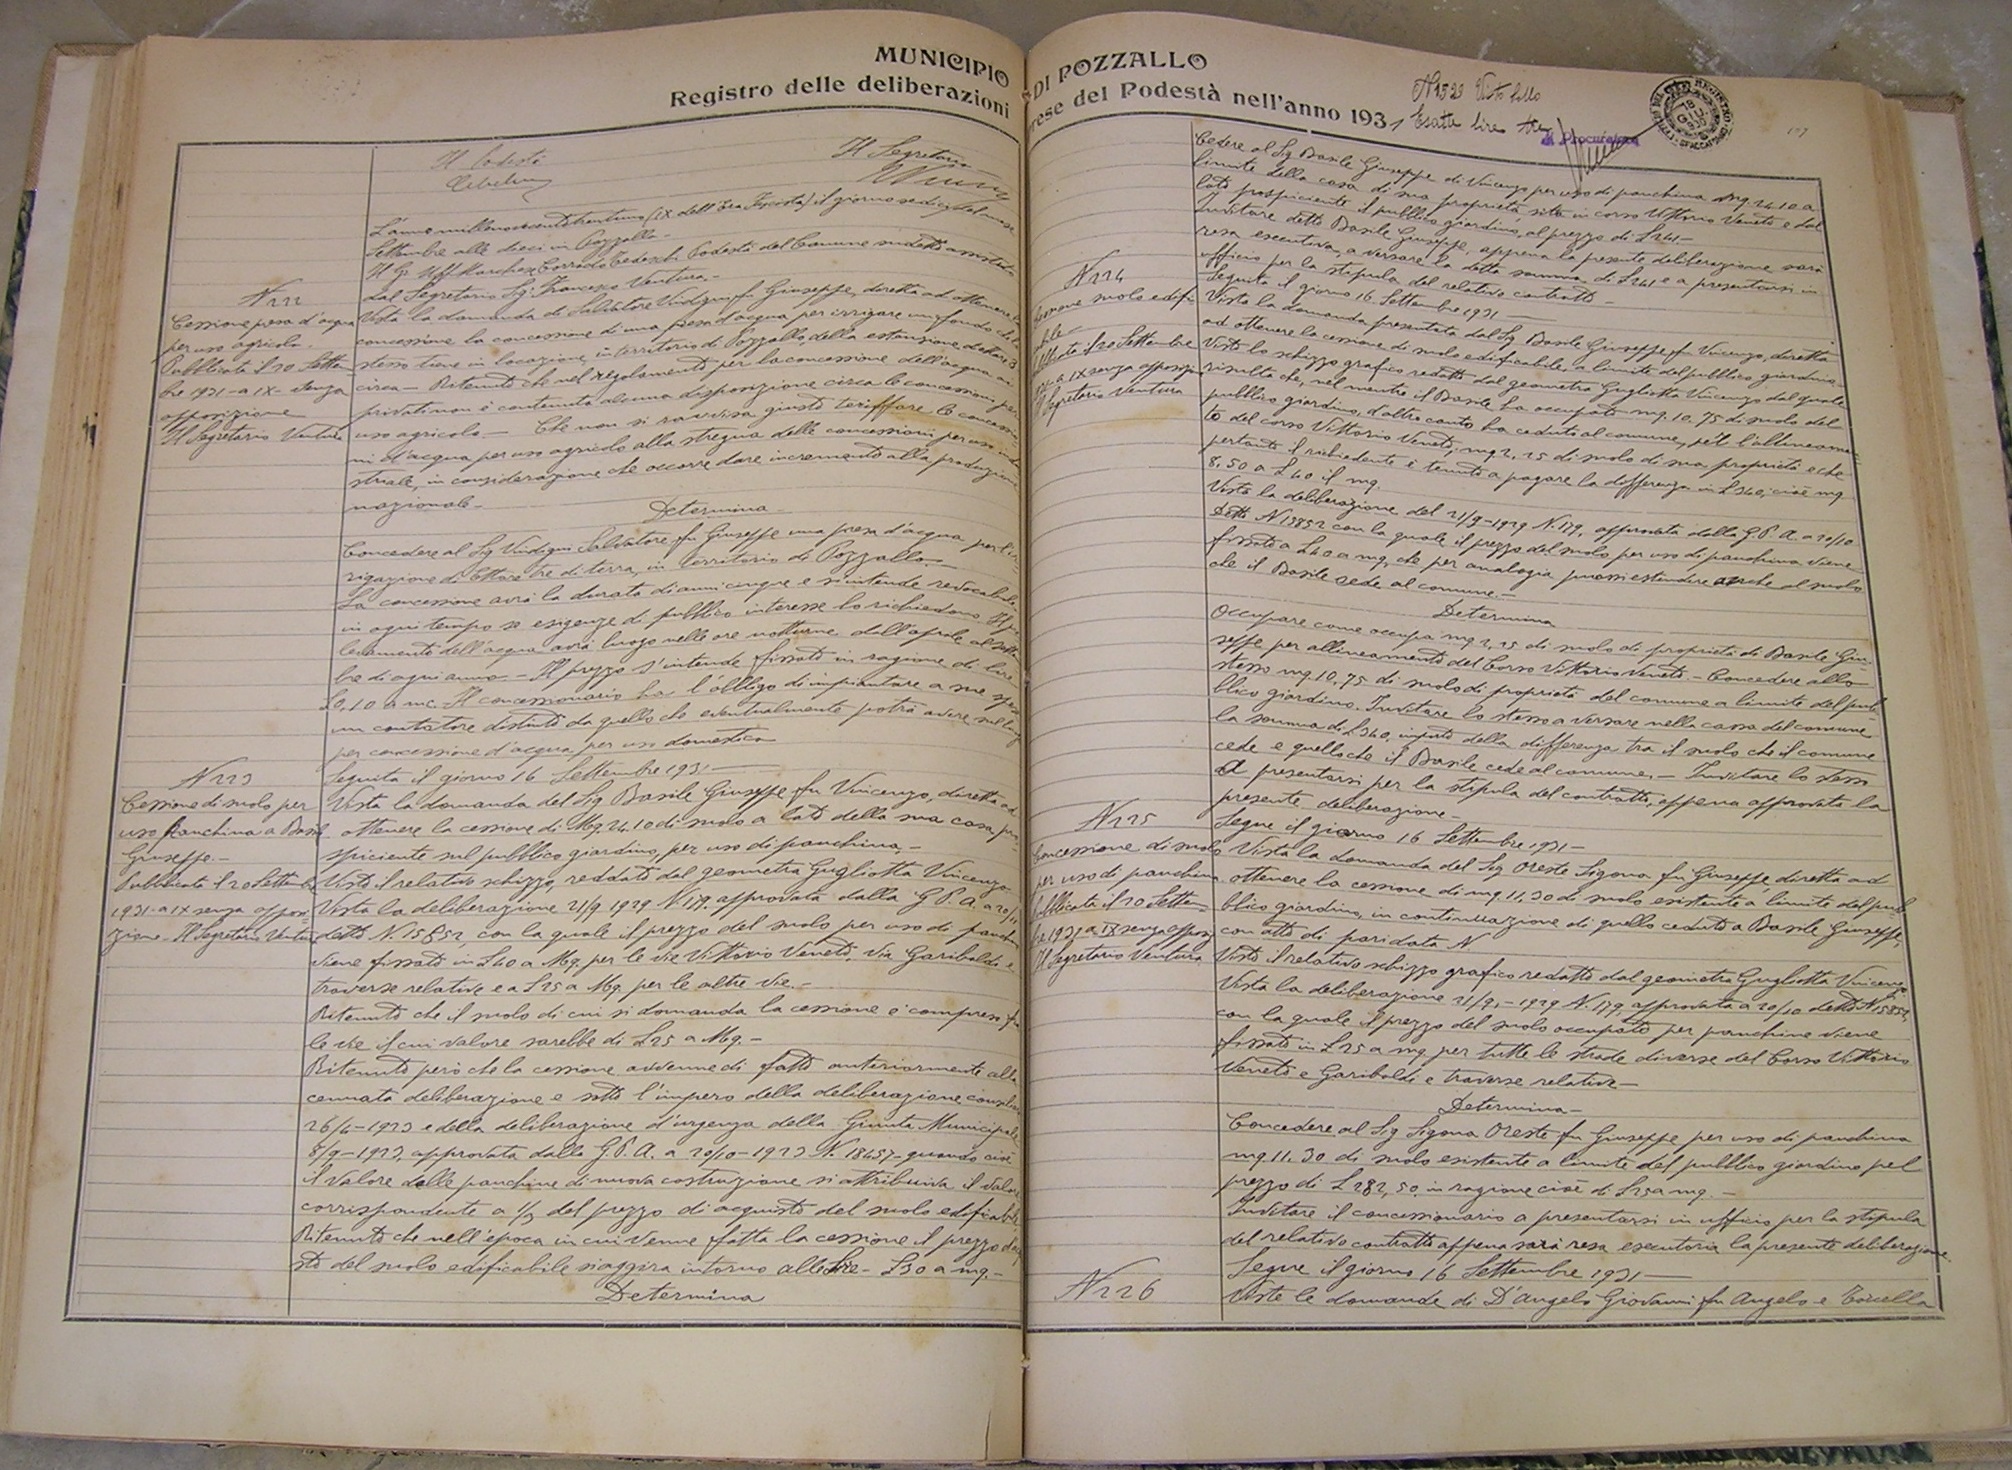 MUNICIPIO DI POZZALLO
Registro delle deliberazioni prese del Podestà nell'anno 1931
Il Podestà
Il Segretario
L'anno millenovecentotrentuno (IX dell'Era Fascista) il giorno sedici del mese
Settembre alle dieci in Pozzallo.-
Il Gr Uff Marchese Corrado Tedeschi Podestà del Comune sudetto assistito
dal Segretario Sig. Francesco Ventura.-
N 222
Cessione presa d'acqua
per uso agricolo.
Pubblicata il 20 Settem
bre 1931-a IX- senza
opposizione
Il Segretario Ventura
Vista la domanda di Salvatore Vindigni fu Giuseppe, diretta ad ottenere
concessione la concessione di una presa d'acqua per irrigare un fondo che lo
stesso tiene in locazione, in territorio di Pozzallo, della estenzione di ettari 3
circa- Ritenuto che nel regolamento per la concessione dell'acqua ai
privati non è contenuta alcuna disposizione circa le concessioni per
uso agricolo.- Che non si ravvisa giusto tariffare le concessio
ni d'acqua per uso agricolo alla stregua delle concessioni per uso indu
striale, in considerazione che occorre dare incremento alla produzione
nazionale.
Determina
Concedere al Sig Vindigni Salvatore fu Giuseppe una presa d'acqua per l'ir
rigazione di Ettari tre di terra, in territorio di Pozzallo.-
La concessione avrà la durata di anni cinque e s'intende revocabile
in ogni tempo se esigenze di pubblico interesse lo richiedano. Il pre
levamento dell'acqua avrà luogo nelle ore notturne dall'aprile al settem
bre di ogni anno- Il prezzo s'intende fissato in ragione di lire
£0,10 a mc. Il concessionario ha l'obbligo di impiantare a sue spese
un contatore distinto da quello che eventualmente potrà avere
per concessione d'acqua per uso domestico
N 223
Cessione di suolo per
uso panchina a Basile
Giuseppe.-
Pubblicata il 20 Settemb
1931-a IX senza oppo
zione- Il Segretario Ventura
Seguita il giorno 16 Settembre 1931
Vista la domanda del Sig Basile Giuseppe fu Vincenzo, diretta ad
ottenere la cessione di Mq. 24.10 di suolo a lato della sua casa, pro
spiciente sul pubblico giardino, per uso di panchina.-
Visto il relativo schizzo, reddato dal geometra Gugliotta Vincenzo
Vista la deliberazione 21/9 1929 N 179, approvata dalla G.P.A. a 20/10
detto N. 15852, con la quale il prezzo del suolo per uso di panchina
viene fissato in £40 a Mq. per le vie Vittorio Veneto, Via Garibaldi e
traverse relative e a £25 a Mq. per le altre vie.-
Ritenuto che il suolo di cui si domanda la cessione è compreso fra
le vie il cui valore sarebbe di £25 a Mq.-
Ritenuto però che la cessione avvenne di fatto anteriormente alla
cennata deliberazione e sotto l'impero della deliberazione consiliare
26/4-1923 e della deliberazione d'urgenza della Giunta Municipale
8/9-1923, approvata dalla G.P.A. a 20/10-1923 N. 18457- quando cioè
il valore delle panchine di nuova costruzione si attribuiva il valore
corrispondente a 1/3 del prezzo di acquisto del suolo edificabile
Ritenuto che nell'epoca in cui venne fatta la cessione il prezzo
del suolo edificabile s'aggira intorno alle lire- £30 a mq.-
Determina
N 1529 Visto bollo
Esatte lire tre
Il Procuratore
Cedere al Sig. Basile Giuseppe di Vincenzo per uso di panchina mq 24.10 a
limite della casa di sua proprietà, sita in corso Vittorio Veneto e dal
lato prospiciente il pubblico giardino, al prezzo di £241-
Invitare detto Basile Giuseppe, appena la presente deliberazione sarà
resa esecutiva, a versare la detta somma di £241 e a presentarsi in
ufficio per la stipula del relativo contratto.-
N 224
Cessione suolo edifi
cabile-
Pubblicata il 20 Settembre
1931-a IX senza opposizione
Il Segretario Ventura
Seguita il giorno 16 Settembre 1931
Vista la domanda presentata dal Sig Basile Giuseppe fu Vincenzo, diretta
ad ottenere la cessione di suolo edificabile a limite del pubblico giardino-
Visto lo schizzo grafico redatto dal geometra Gugliotta Vincenzo dal quale
risulta che, nel mentre il Basile ha occupato mq. 10,75 di suolo del
pubblico giardino, d'altro canto ha ceduto al comune, per l'allineamen
to del corso Vittorio Veneto, mq. 2,25 di suolo di sua proprietà e che
pertanto il richiedente è tenuto a pagare la differenza in £340, cioè mq
8,50 a £40 il mq.
Vista la deliberazione del 21/9-1929 N. 179, approvata dalla G.P.A. a 20/10
detto N 15852 con la quale il prezzo del suolo per uso di panchina viene
fissato a £40 a mq, che per analogia puossi estendere anche al suolo
che il Basile cede al comune.-
Determina
Occupare come occupa mq 2,25 di suolo di proprietà di Basile Giu
seppe per allineamento del Corso Vittorio Veneto- Concedere allo
stesso mq. 10,75 di suolo di proprietà del comune a limite del pub
blico giardino. Invitare lo stesso a versare nella cassa del comune
la somma di £340, importo della differenza tra il suolo che il comune
cede e quello che il Basile cede al comune.- Invitare lo stesso
a presentarsi per la stipula del contratto, appena approvata la
presente deliberazione-
N 225
Concessione di suolo
per uso di panchina
Pubblicata il 20 Settem
bre 1931 a IX senza oppos
Il Segretario Ventura
Segue il giorno 16 Settembre 1931-
Vista la domanda del Sig Oreste Sigona fu Giuseppe, diretta ad
ottenere la cessione di mq. 11,30 di suolo esistente a limite del pub
blico giardino, in continuazione di quello ceduto a Basile Giuseppe,
con atto di pari data N
Visto il relativo schizzo grafico redatto dal geometra Gugliotta Vincenzo
Vista la deliberazione 21/9,-1929 N. 179, approvata a 20/10 detto N 15852,
con la quale il prezzo del suolo occupato per panchine viene
fissato in £25 a mq per tutte le strade diverse del Corso Vittorio
Veneto e Garibaldi e traverse relative-
Determina-
Concedere al Sig Sigona Oreste fu Giuseppe per uso di panchina
mq. 11.30 di suolo esistente a limite del pubblico giardino pel
prezzo di £282,50, in ragione cioè di £25 a mq.-
Invitare il concessionario a presentarsi in ufficio per la stipula
del relativo contratto appena sarà resa esecutoria la presente deliberazione.
N 226
Segue il giorno 16 Settembre 1931
Viste le domande di D'Angelo Giovanni fu Angelo e